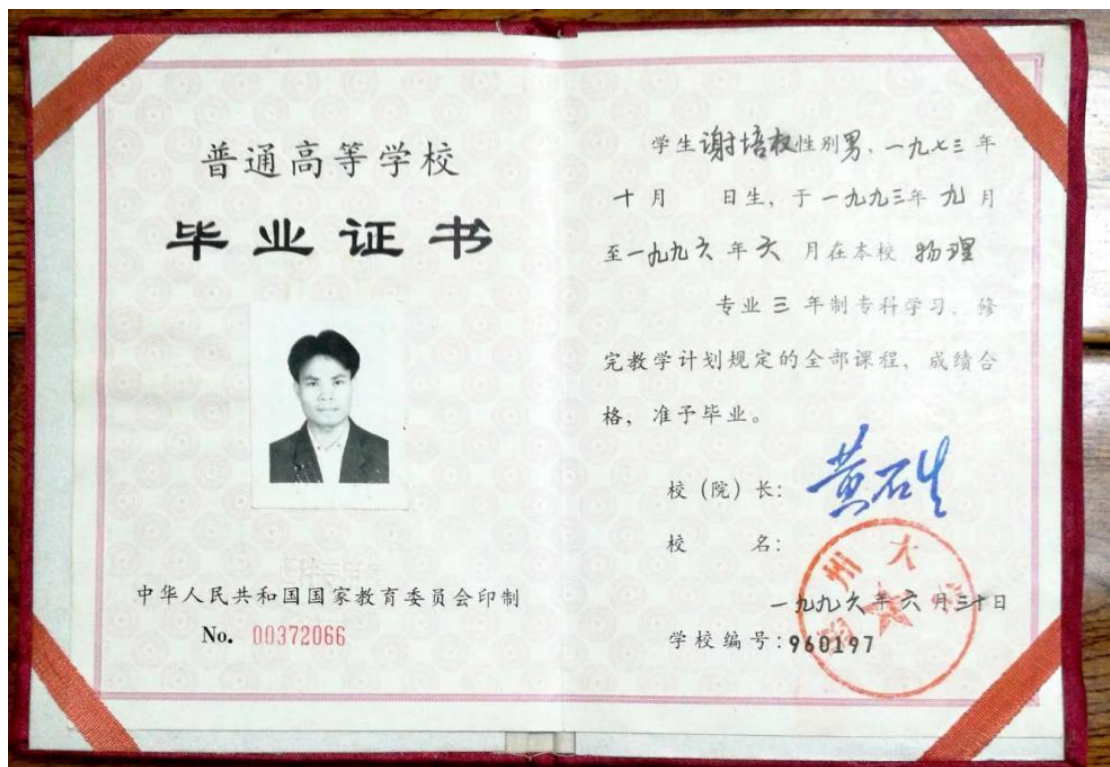 普通高等学校
毕业证书
中华人民共和国国家教育委员会印制
No. 00372066
学生谢培权性别男，一九七三年
十月 日生，于一九九三年九月
至一九九六年六 月在本校 物理
专业三年制专科学习，修
完教学计划规定的全部课程，成绩合
格，准予毕业。
校（院）长：
校 名：
州大
一九九六年六月三十日
学校编号：960197